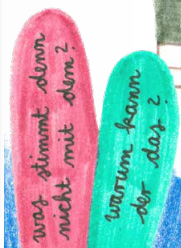 was stimmt denn
nicht mit dem?
warum kann
der das?